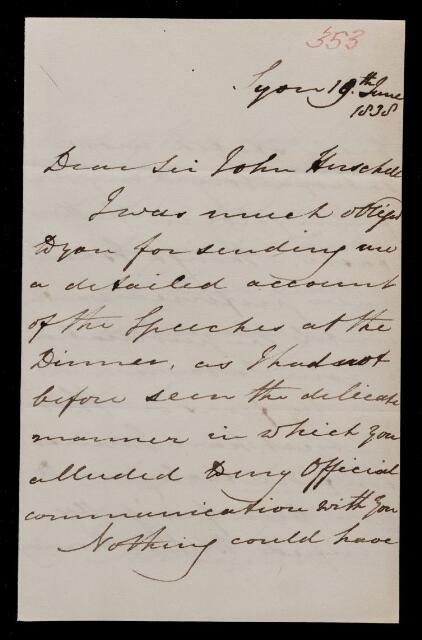 353
Syon 19th June
1838
Dear Sir John Herschell
I was much obliged
to you for sending me
a detailed account
of the Speeches at the
Dinner, as I had not
before seen the delicate
manner in which you
alluded to my Official
communication with you
Nothing could have